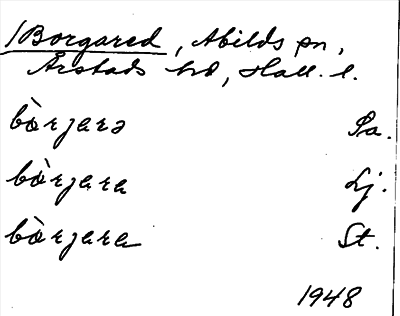 /Borgared, Abilds sn,
Årstads hd, Hall. l.
bòrjarə Pa.
bòrjara Lj.
bòrjara St.
1948